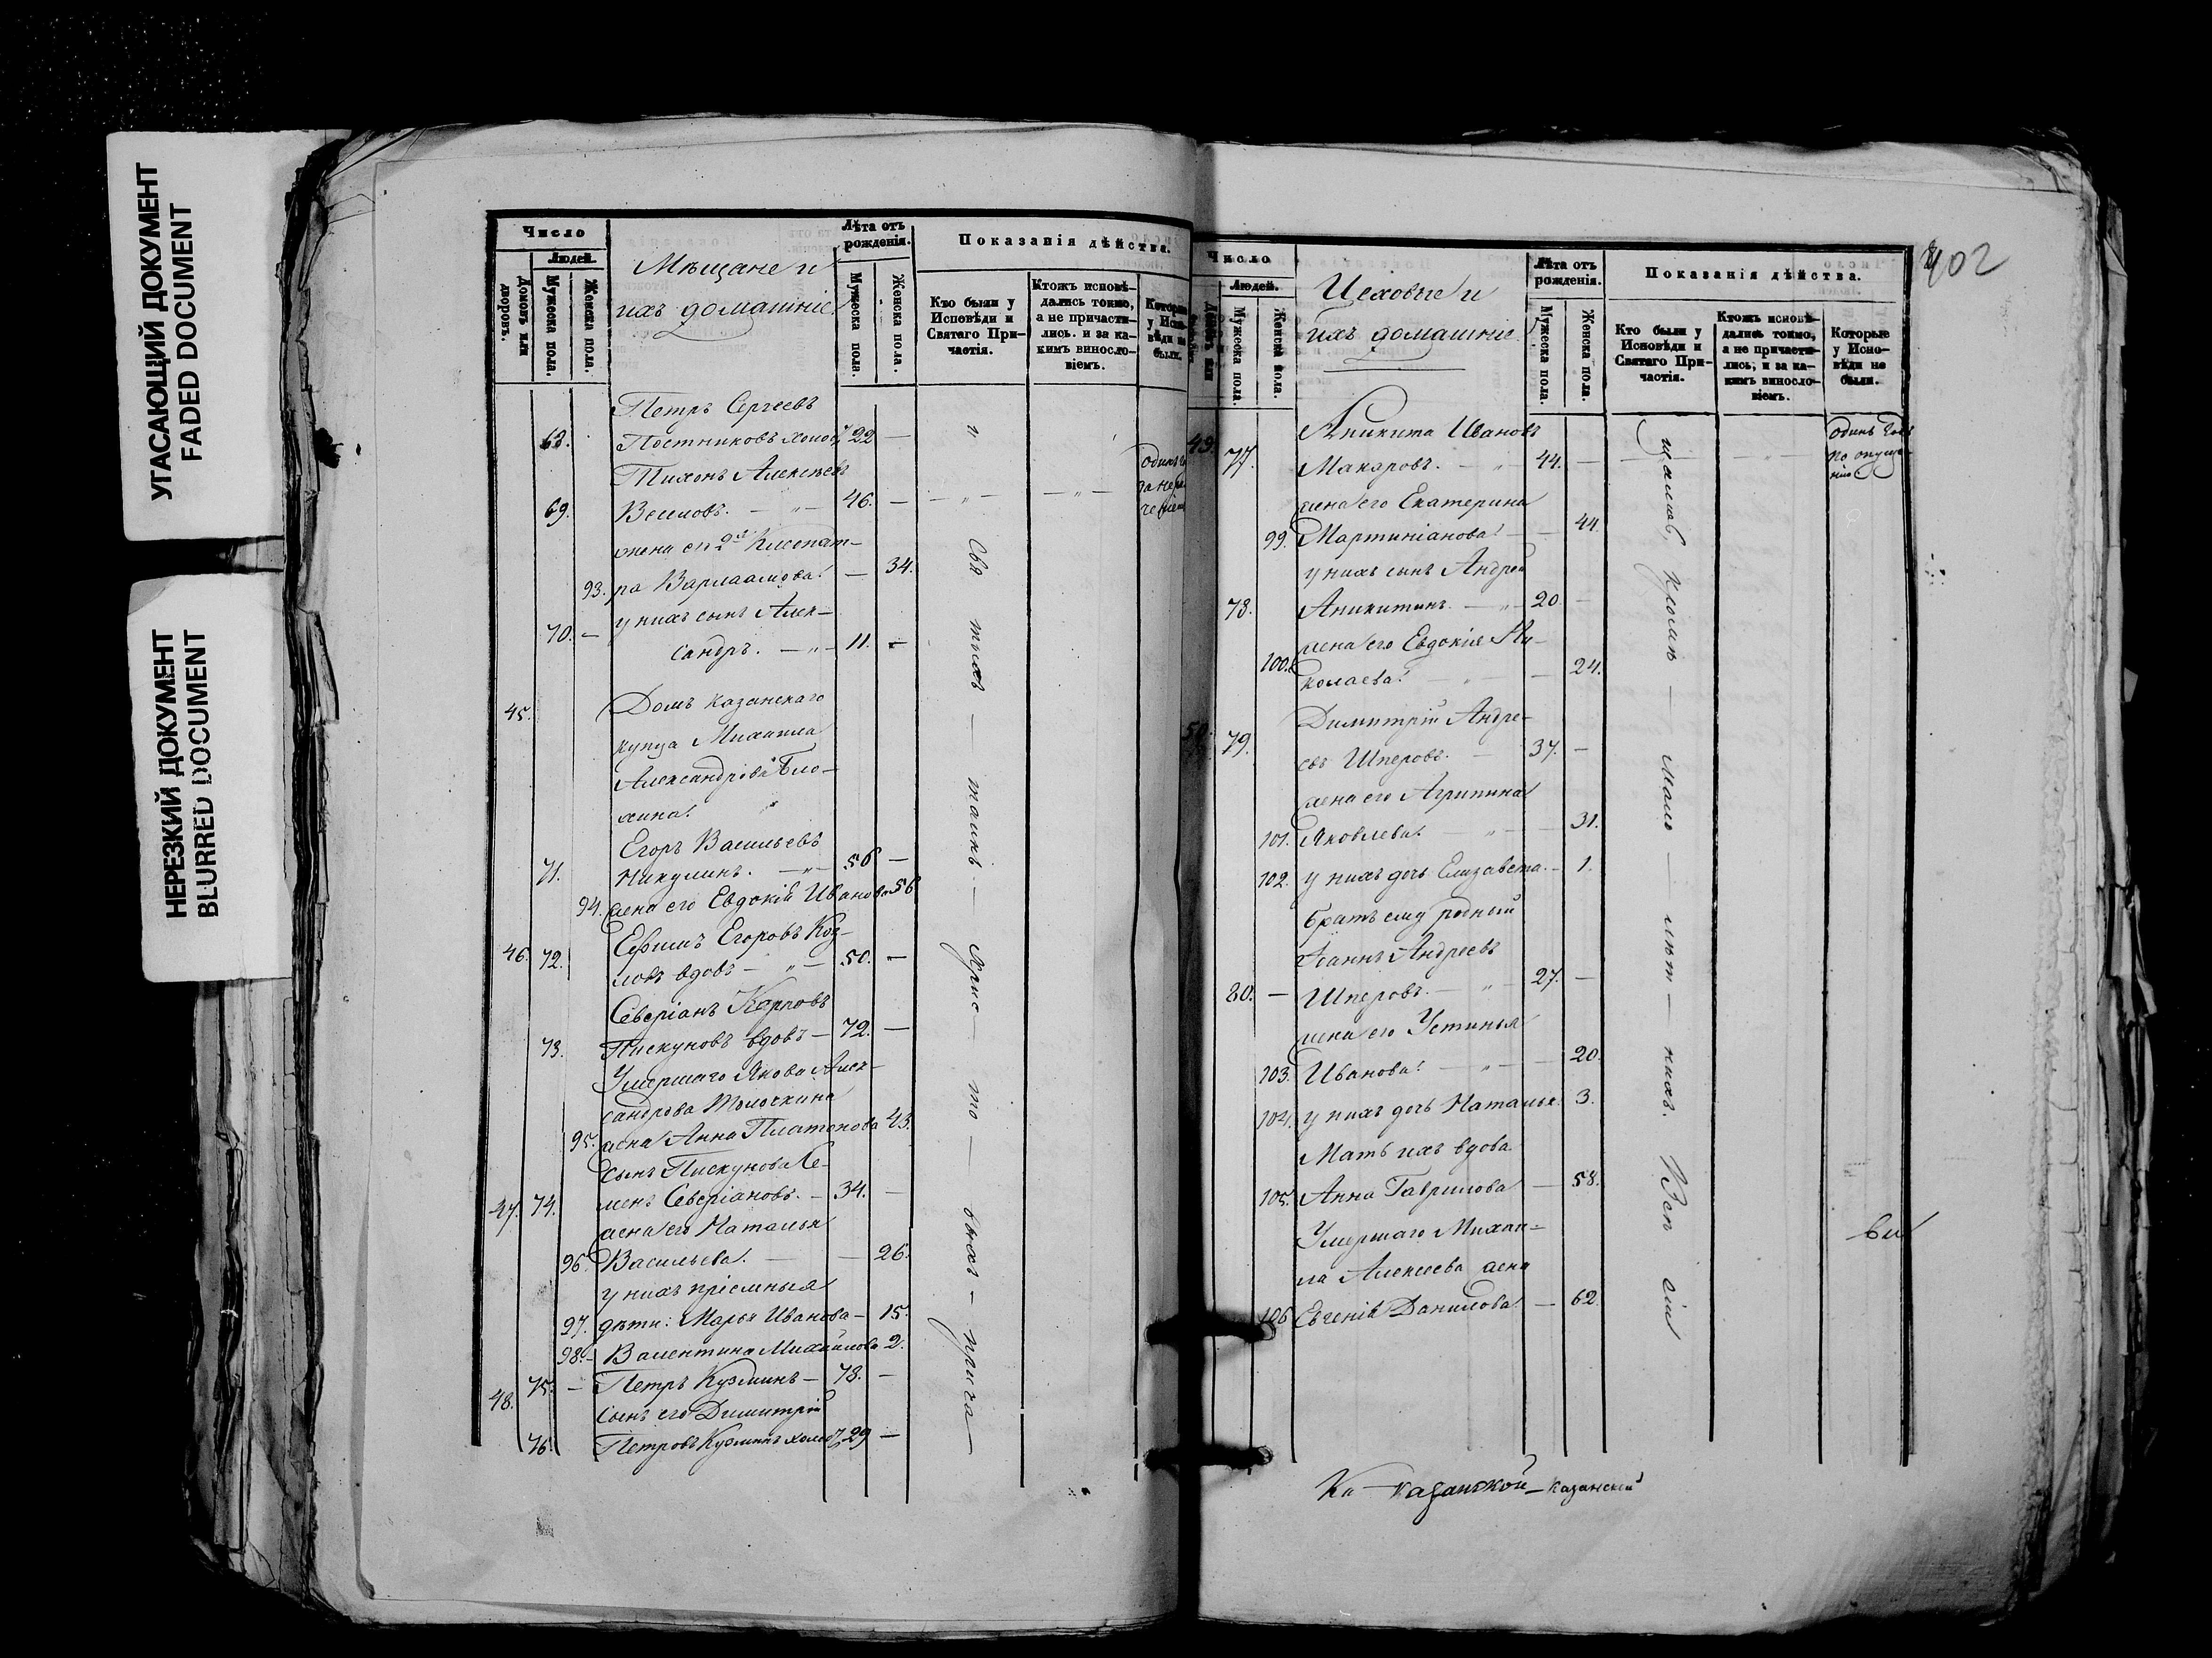 УГАСАЮЩИЙ ДОКУМЕНТ
FADED DOCUMENT
НЕРЕЗКИЙ ДОКУМЕНТ
BLURRED DOCUMENT
Число
Людей.
Домовъ или дворовъ.
Мужеска пола.
Женска пола.
Мѣщане и
ихъ домашніе
Лѣта отъ рожденія.
Мужеска пола.
Женска пола.
Показанія дѣйства.
Кто были у Исповѣди и Святаго Причастія.
Ктожъ исповѣдались токмо, а не причастились. и за какимъ винословіемъ.
Которые у Исповѣди не были.
Петръ Сергеевъ
68. Постниковъ холос. 22 —
Тихонъ Алексѣевъ
69. — " — 46. — — " — — " —
жена его 2я Клеопат-
93. ра Варлаамова. — 34.
у нихъ сынъ Алек-
70. — сандръ. — " — 11. —
45. Домъ Казанскаго
купца Михаила
Александрова Бло-
хина.
Егоръ Васильевъ
71. Никулинъ. — " — 56 —
94. жена его Евдокія Иванова 56
Ефимъ Егоровъ Коз-
46. 72. ловъ вдовъ — " — 50. —
Северіанъ Карповъ
73. Пискуновъ вдовъ — 72. —
Умершаго Якова Алек-
сандрова
95. жена Анна Платонова 43.
сынъ Пискунова Се-
47. 74. менъ Северіановъ. — 34. —
жена его Наталья
96. Васильева. — — 26.
у нихъ пріемныя
97. дѣти: Марья Иванова — 15.
98. — Валентина Михайлова 2.
48. 75. — Петръ Кузминъ — 78. —
сынъ его Димитрій
76. Петровъ Кузминъ холос. 29 —
и Свя тыхъ — таинъ — Хрис — то — выхъ — прича —
Число
Людей.
Мужеска пола.
Женска пола.
Цеховые и
ихъ домашніе.
Лѣта отъ рожденія.
Мужеска пола.
Женска пола.
Показанія дѣйства.
Кто были у Исповѣди и Святаго Причастія.
Ктожъ исповѣдались токмо, а не причастились, и за какимъ винословіемъ.
Которые у Исповѣди не были.
402
Аникита Ивановъ
49. 77. Макаровъ. — " — 44. — — " —
одинъ
по опуще-
нію
жена его Екатерина
99. Мартиніанова. — — 44.
у нихъ сынъ Андрей
78. Аникитинъ. — " — 20. —
жена его Евдокія Ни-
100. колаева. — " — — 24.
Димитрій Андре-
50. 79. евъ Шперовъ. — 37. —
жена его Агрипина
101. Яковлева. — " — — 31.
102. у нихъ дочь Елизавета. — 1.
братъ ему родный
Іоаннъ Андреевъ
80. — Шперовъ. — " — 27. —
жена его Устинья
103. Иванова. — " — — 20.
104. у нихъ дочь Наталья. 3.
Мать ихъ вдова
105. Анна Гаврилова — 58.
Умершаго Михаи-
ла Алексеева жена
106 Евгенія Данилова. — 62.
щались, кромѣ — мало — лѣт — нихъ. Всѣ сіи
Ка — казанской — Казанской